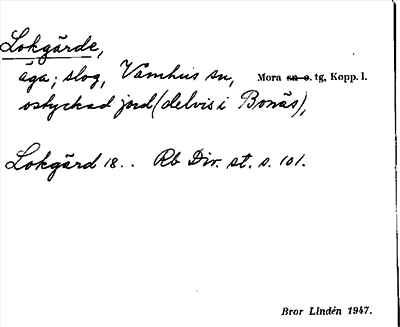 Lokgärde,
äga; slog, Vamhus sn, Mora sn o. tg, Kopp. l.
ostyckad jord (delvis i Bonäs),
Lokgärd 18.. Rb Div. st. s. 101.
Bror Lindén 1947.